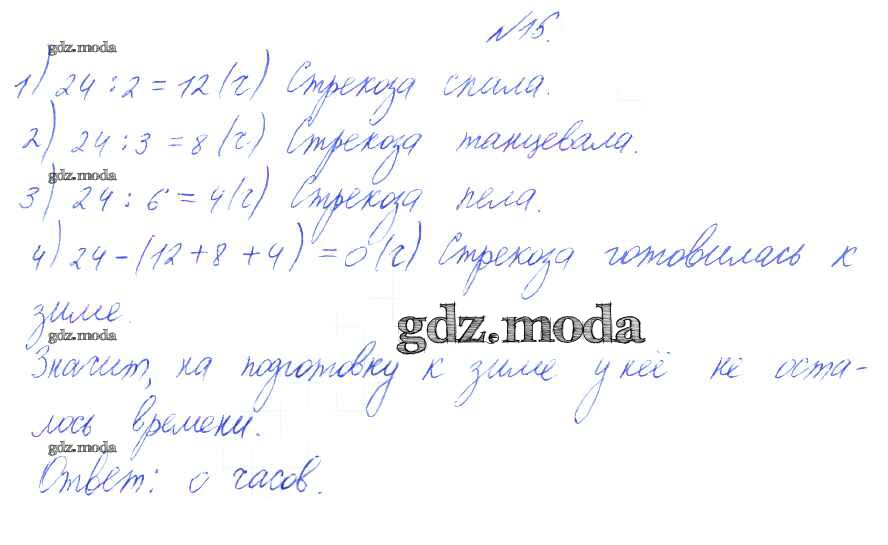 №15.
gdz.moda
1) 24 : 2 = 12 (ч) Стрекоза спала.
2) 24 : 3 = 8 (ч) Стрекоза танцевала.
gdz.moda
3) 24 : 6 = 4 (ч) Стрекоза пела.
4) 24 - (12 + 8 + 4) = 0 (ч) Стрекоза готовилась к
зиме.
gdz.moda
gdz.moda
Значит, на подготовку к зиме у неё не оста-
лось времени.
gdz.moda
Ответ: 0 часов.